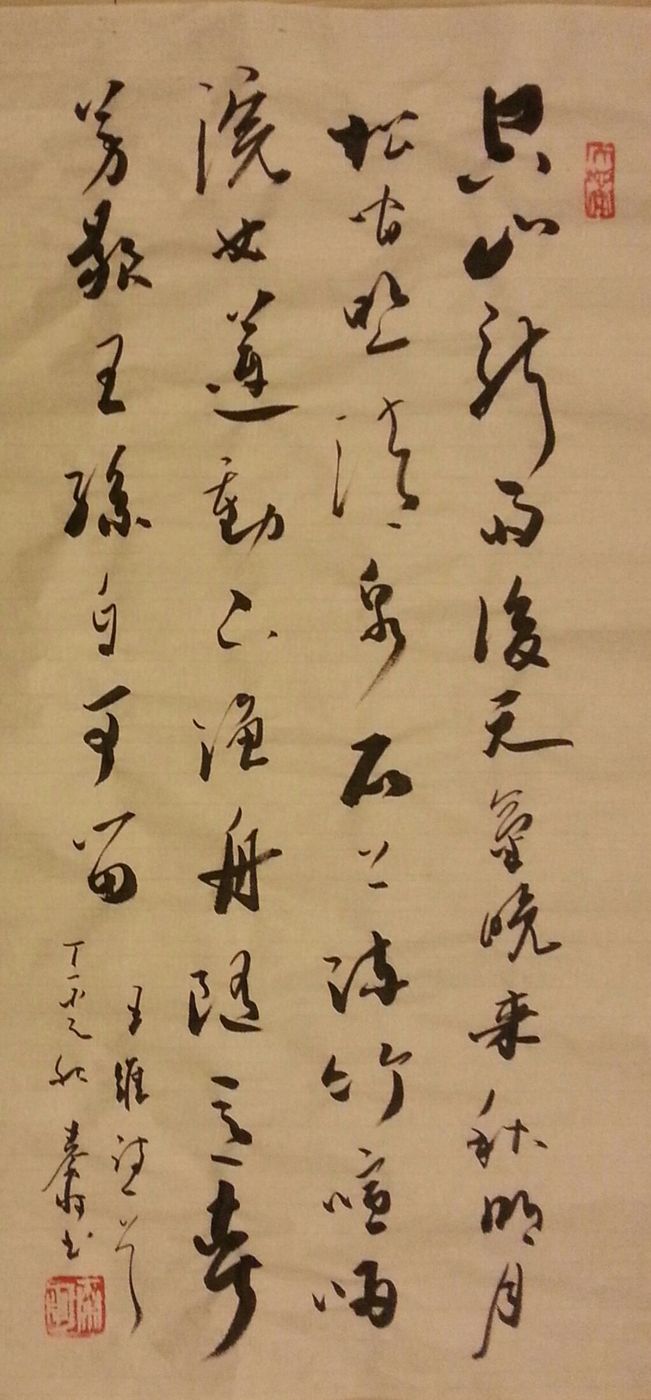 空山新雨後天氣晚来秋明月
松間照清泉石上流竹喧歸
浣女蓮動下漁舟隨意春
芳歇王孫自可留
王維詩
丁亥 秋 书